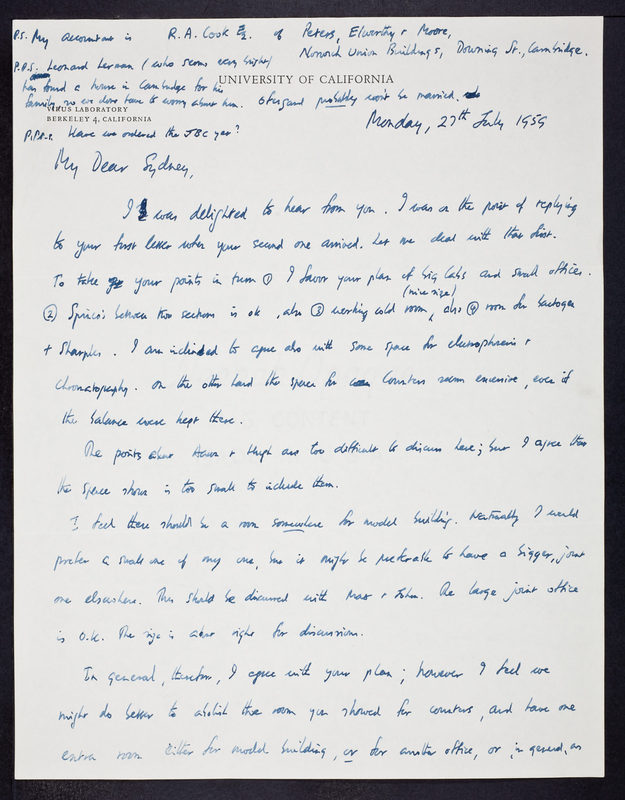 P.S. My accountant is R.A. Cook Esq. of Peters, Elworthy & Moore,
Norwich Union Buildings, Downing St., Cambridge.
P.P.S. Leonard Lerman (who seems very bright)
has found a house in Cambridge for his
family so we dont have to worry about him. Streisand probably won't be married.
UNIVERSITY OF CALIFORNIA
VIRUS LABORATORY
BERKELEY 4, CALIFORNIA
P.P.P.S. Have we ordered the JBC yet?
Monday, 27th July 1959
My Dear Sydney,
I was delighted to hear from you. I was on the point of replying
to your first letter when your second one arrived. Let me deal with that first.
To take your points in turn ① I favor your plan of big labs and small offices.
② Spinco's between two sections is ok, also ③ working cold room, (nice size) also ④ room for
+ Sharples. I am inclined to agree also with some space for electrophoresis +
chromatography. On the other hand the space for counters seem excessive, even if
the balance were kept there.
The points about + Hugh are too difficult to discuss here; but I agree that
the space shown is too small to include them.
I feel there should be a room somewhere for model building. Naturally I would
prefer a small one of my own, but it might be preferable to have a bigger, joint
one elsewhere. This should be discussed with Max + John. The large joint office
is O.K. The size is about right for discussions.
In general, therefore, I agree with your plan; however I feel we
might do better to abolish the room you showed for counters, and have one
extra room either for model building, or for another office, or, in general, an